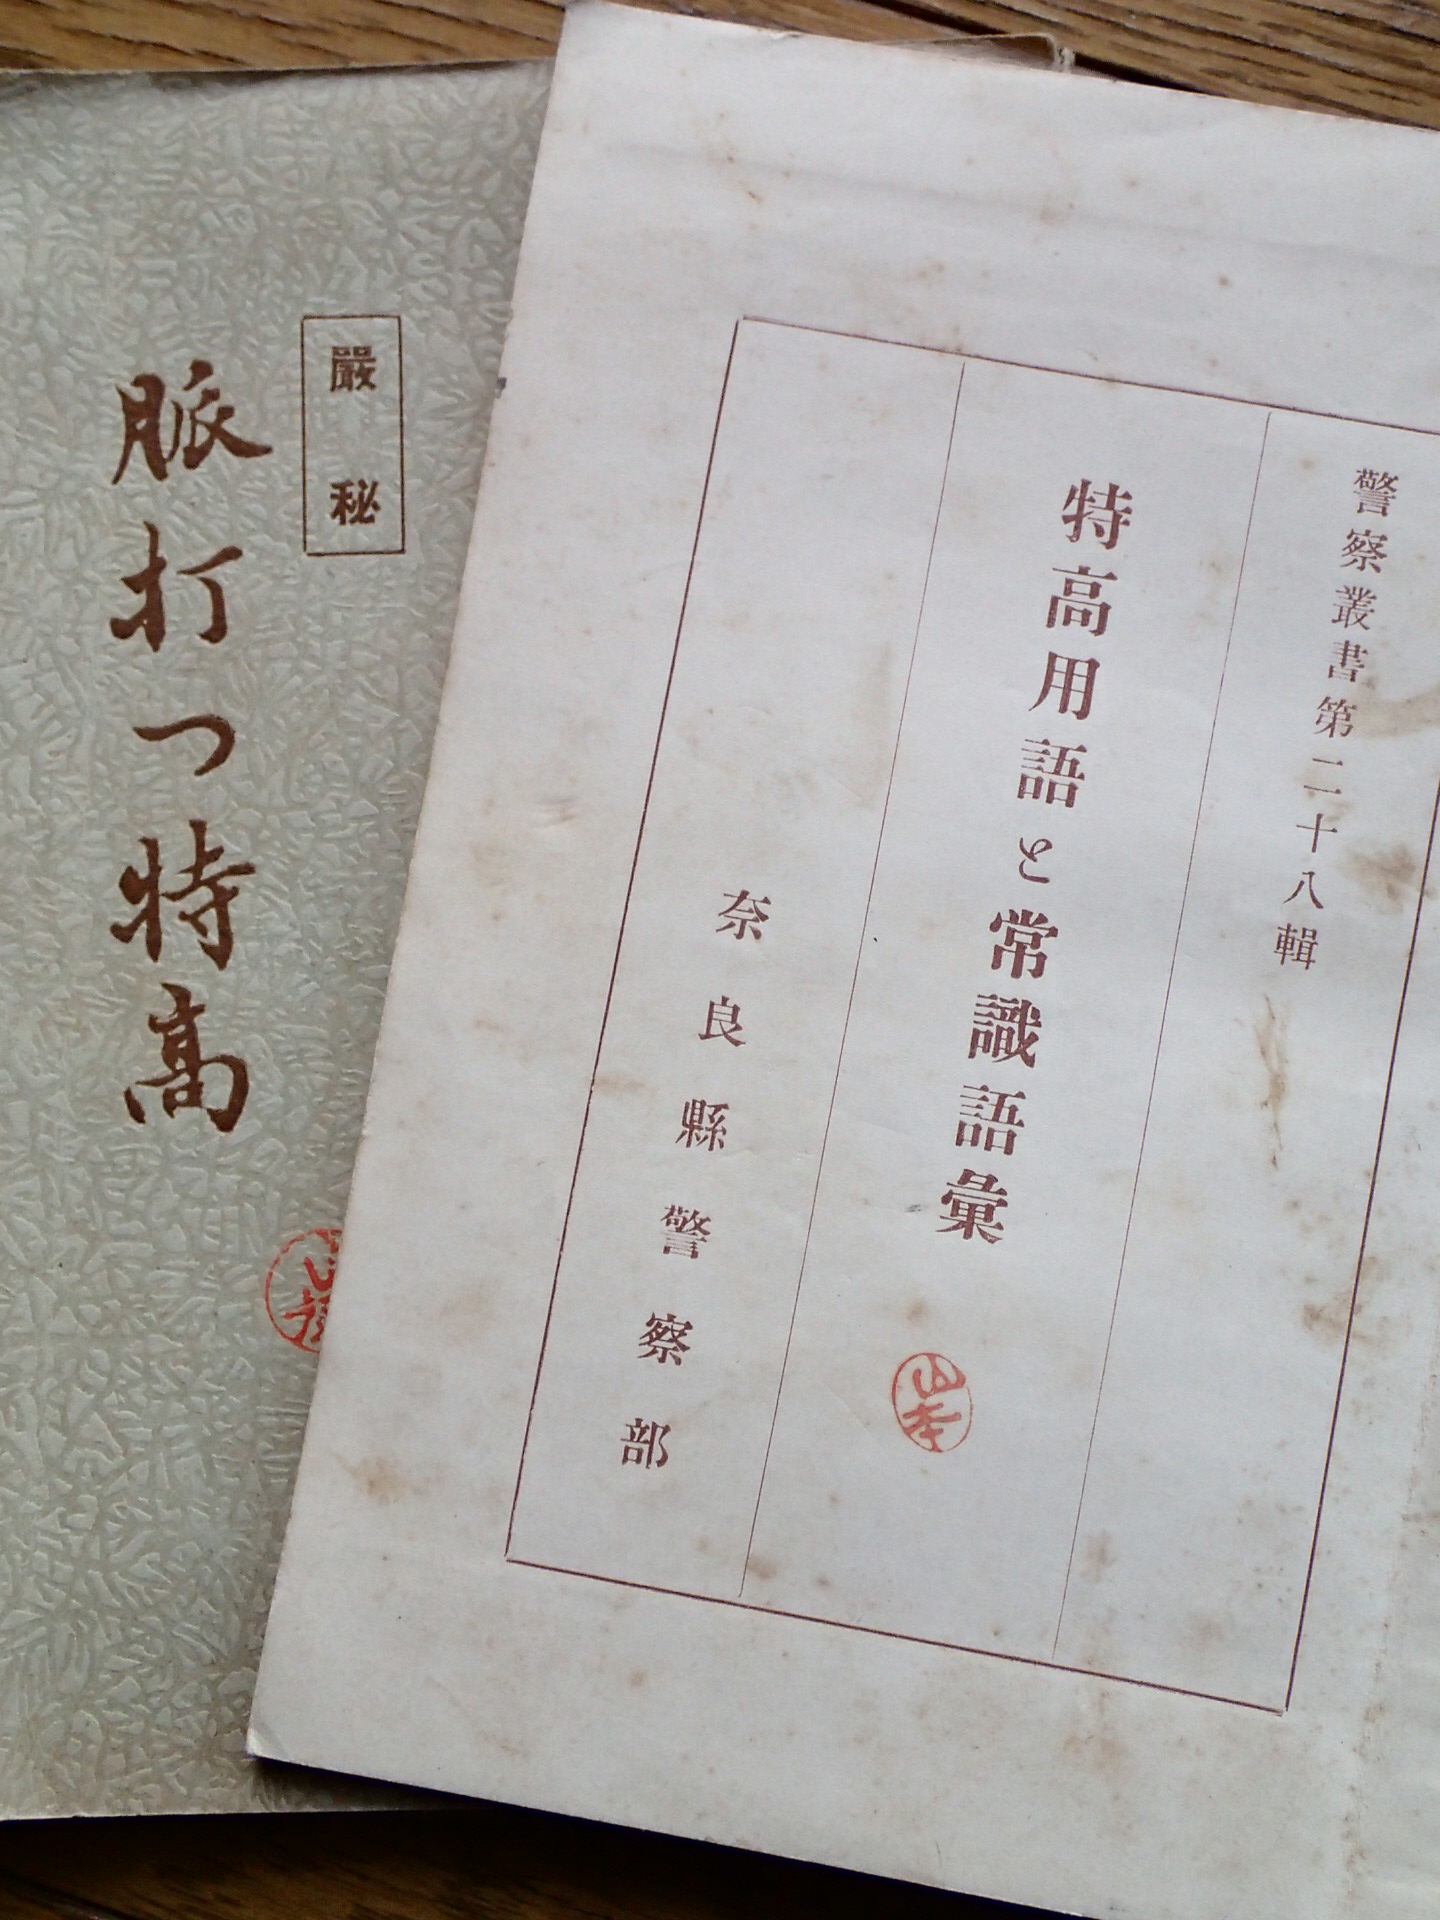 警察叢書第二十八輯
特高用語と常識語彙
山本
奈良縣警察部
嚴秘
脈打つ特高